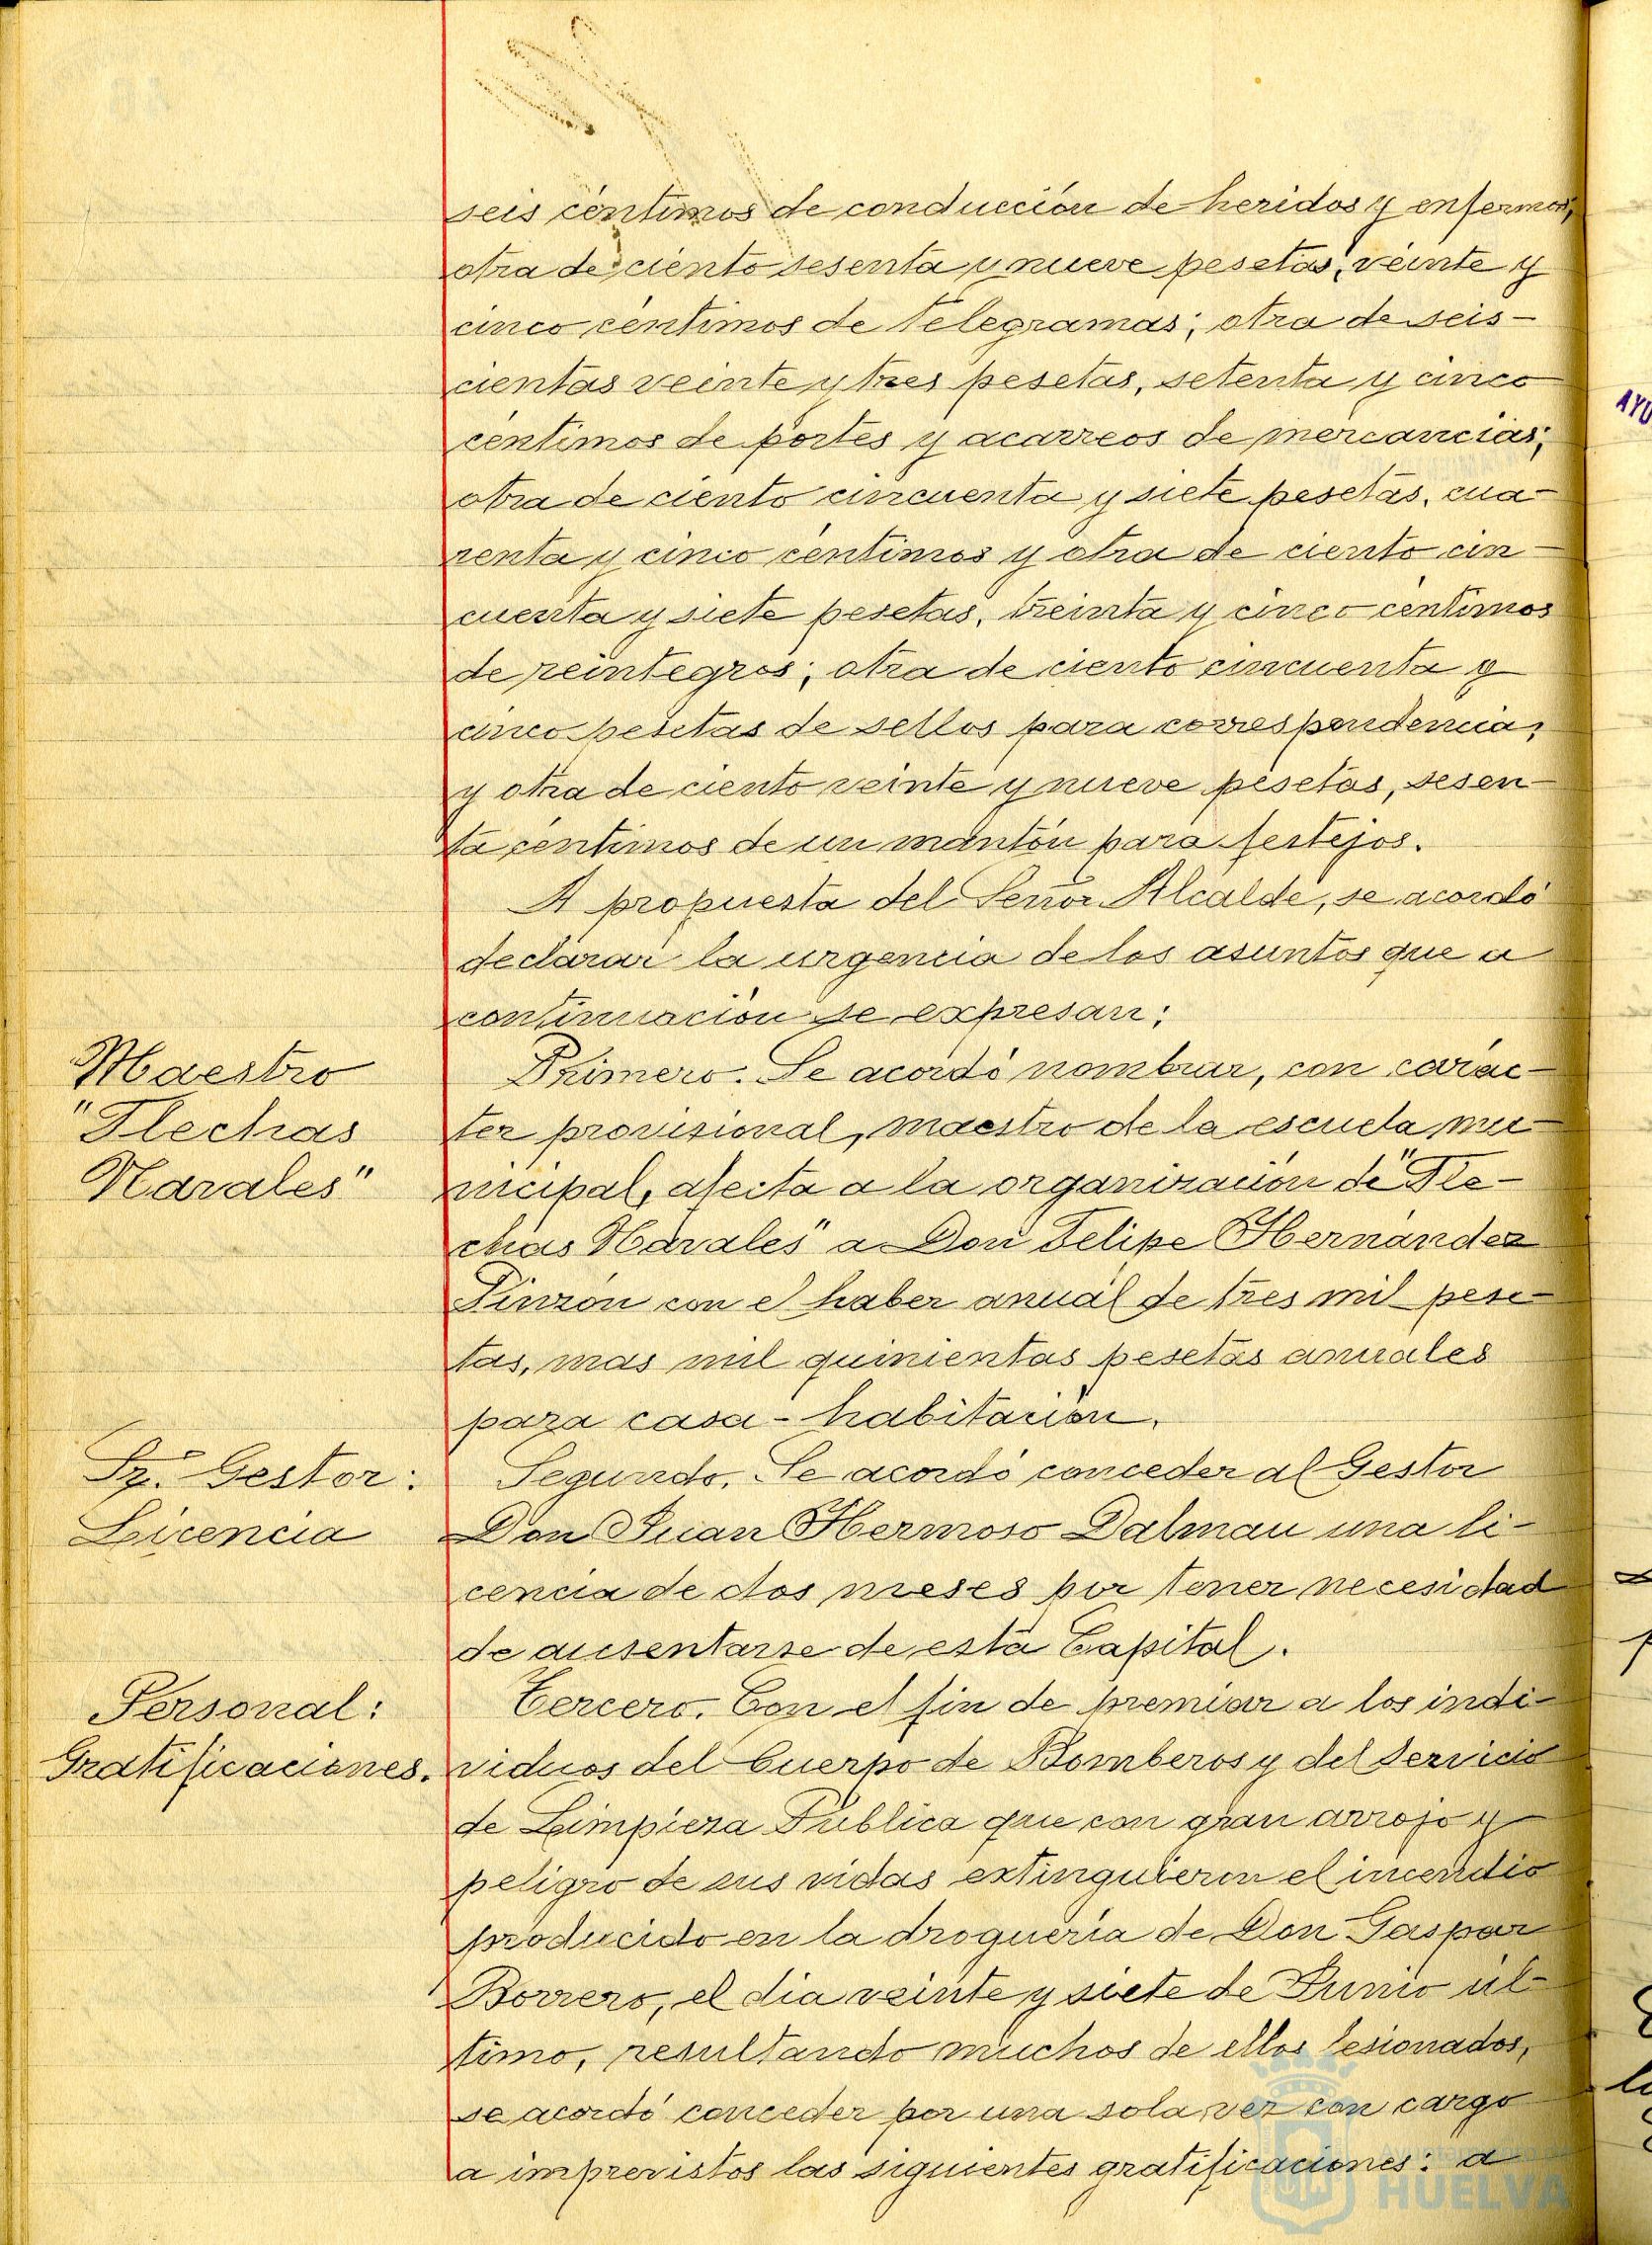 seis céntimos de conducción de heridos y enfermos,
otra de ciento sesenta y nueve pesetas, veinte y
cinco céntimos de telegramas; otra de seis-
cientas veinte y tres pesetas, setenta y cinco
céntimos de portes y acarreos de mercancías;
otra de ciento cincuenta y siete pesetas, cua-
renta y cinco céntimos y otra de ciento cin-
cuenta y siete pesetas, treinta y cinco céntimos
de reintegros; otra de ciento cincuenta y
cinco pesetas de sellos para correspondencia;
y otra de ciento veinte y nueve pesetas, sesen-
ta céntimos de un mantón para festejos.
A propuesta del Señor Alcalde, se acordó
declarar la urgencia de los asuntos que a
continuación se expresan:
Maestro
"Flechas
Navales"
Primero. Se acordó nombrar, con carác-
ter provisional, maestro de la escuela mu-
nicipal, afecta a la organización de "Fle-
chas Navales" a Don Felipe Hernández
Pinzón con el haber anual de tres mil pese-
tas, mas mil quinientas pesetas anuales
para casa-habitación.
Sr. Gestor:
Licencia
Segundo. Se acordó conceder al Gestor
Don Juan Hermoso Dalmau una li-
cencia de dos meses por tener necesidad
de ausentarse de esta Capital.
Personal:
Gratificaciones.
Tercero. Con el fin de premiar a los indi-
viduos del Cuerpo de Bomberos y del Servicio
de Limpieza Pública que con gran arrojo y
peligro de sus vidas extinguieron el incendio
producido en la droguería de Don Gaspar
Borrero, el dia veinte y siete de Junio úl-
timo, resultando muchos de ellos lesionados,
se acordó conceder por una sola vez con cargo
a imprevistos las siguientes gratificaciones: a
AYU
Ayuntamiento de
HUELVA